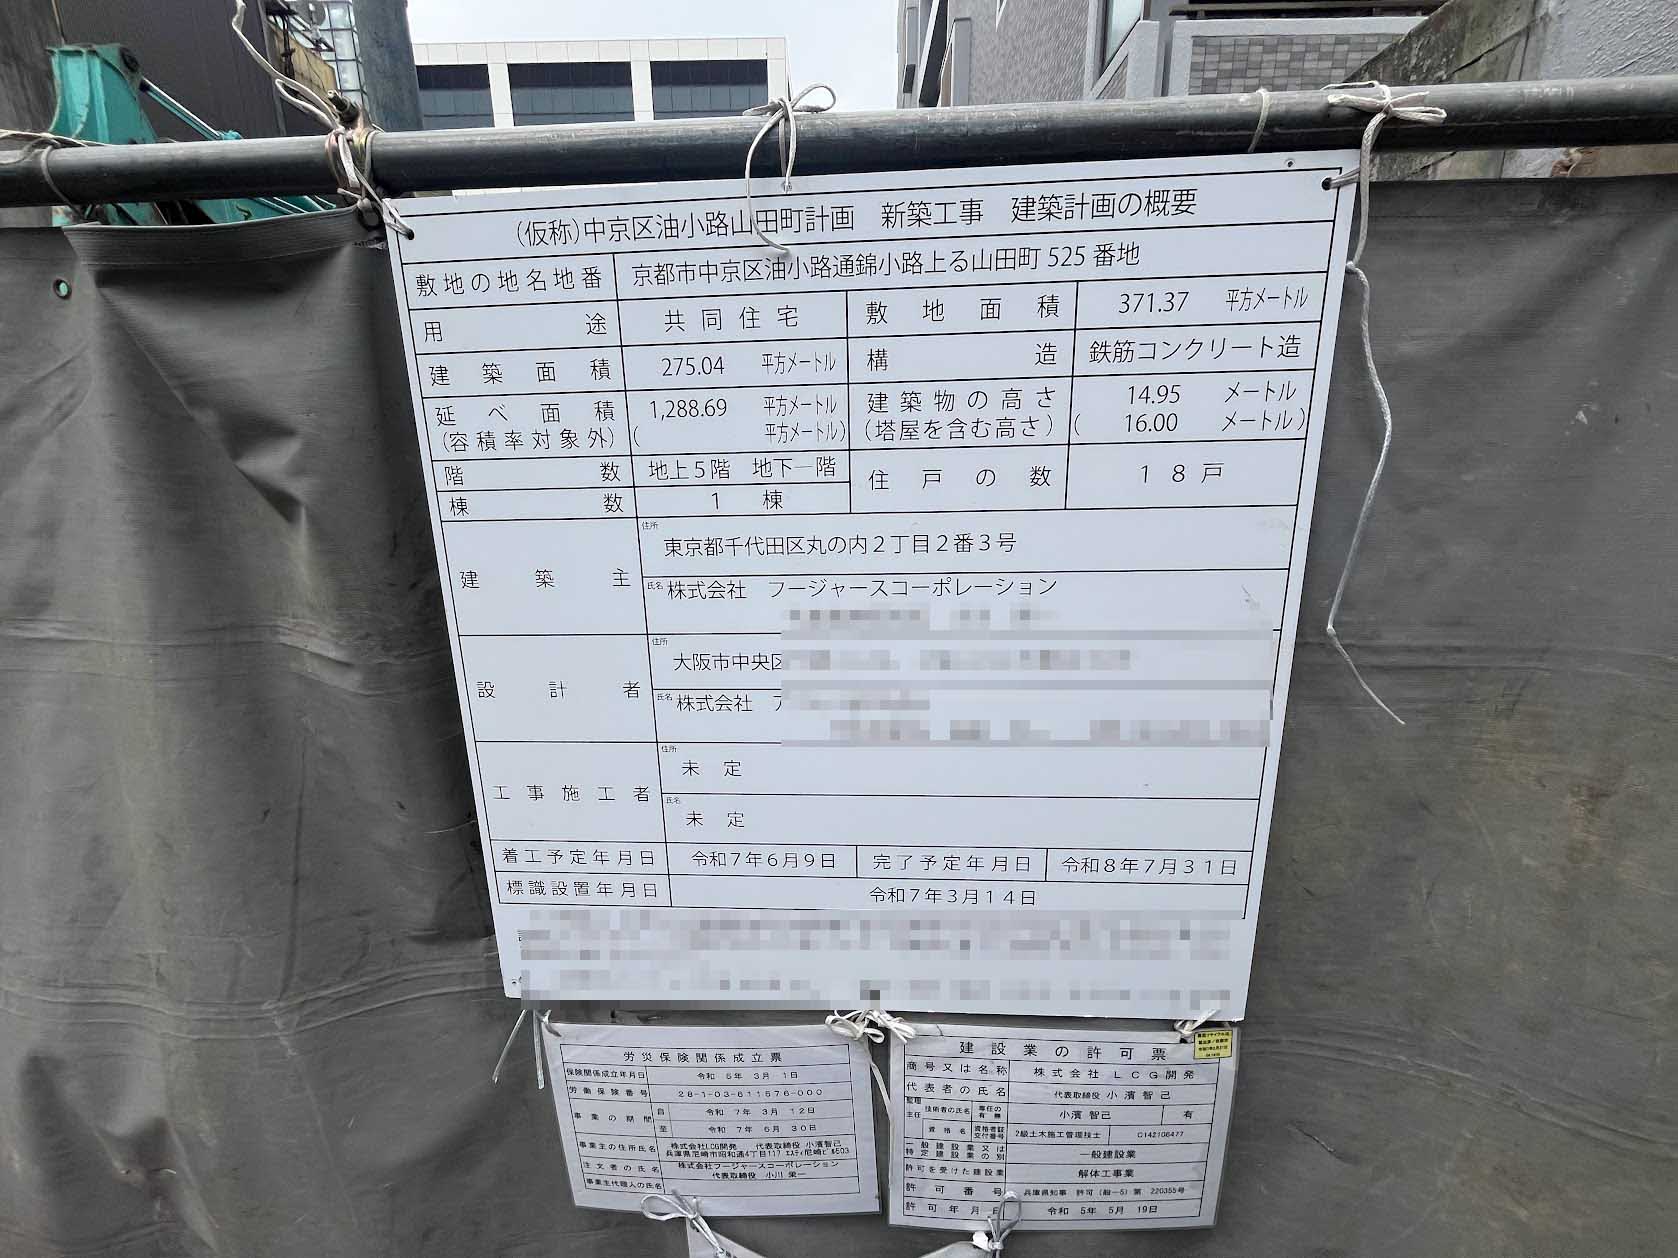 (仮称)中京区油小路山田町計画　新築工事　建築計画の概要
敷地の地名地番　京都市中京区油小路通錦小路上る山田町 525 番地
用途　共同住宅　敷地面積　371.37　平方メートル
建築面積　275.04　平方メートル　構造　鉄筋コンクリート造
延べ面積　1,288.69　平方メートル　建築物の高さ　14.95　メートル
(容積率対象外)　(　平方メートル)　(塔屋を含む高さ)　(　16.00　メートル)
階数　地上5階　地下一階　住戸の数　18戸
棟数　1　棟
建築主　住所
東京都千代田区丸の内2丁目2番3号
氏名　株式会社　フージャースコーポレーション
設計者　住所
大阪市中央区
氏名　株式会社
工事施工者　住所
未定
氏名
未定
着工予定年月日　令和7年6月9日　完了予定年月日　令和8年7月31日
標識設置年月日　令和7年3月14日
労災保険関係成立票
保険関係成立年月日　令和 5年 3月 1日
労働保険番号　28-1-03-611576-000
事業の期間　自　令和 7年 3月 12日
至　令和 7年 6月 30日
事業主の住所氏名　株式会社LCG開発　代表取締役 小濱智己
兵庫県尼崎市昭和通4丁目117 エスティ尼崎ビル503
注文者の氏名　株式会社フージャースコーポレーション
代表取締役 小川 栄一
事業主代理人の氏名
建設業の許可票
商号又は名称　株式会社 LCG開発
代表者の氏名　代表取締役 小濱 智己
監理
主任　技術者の氏名　専任の有無　小濱 智己　有
資格名　資格者証交付番号　2級土木施工管理技士　C142106477
一般建設業又は
特定建設業の別　一般建設業
許可を受けた建設業　解体工事業
許可番号　兵庫県知事 許可(般-5)第 220355号
許可年月日　令和 5年 5月 19日